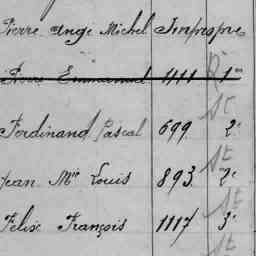 Pierre Ange Michel Impropre
Emmanuel 1111 1re
Ferdinand Pascal 699 2e
Jean Mie Louis 893 2e
Felix François 1117 3e